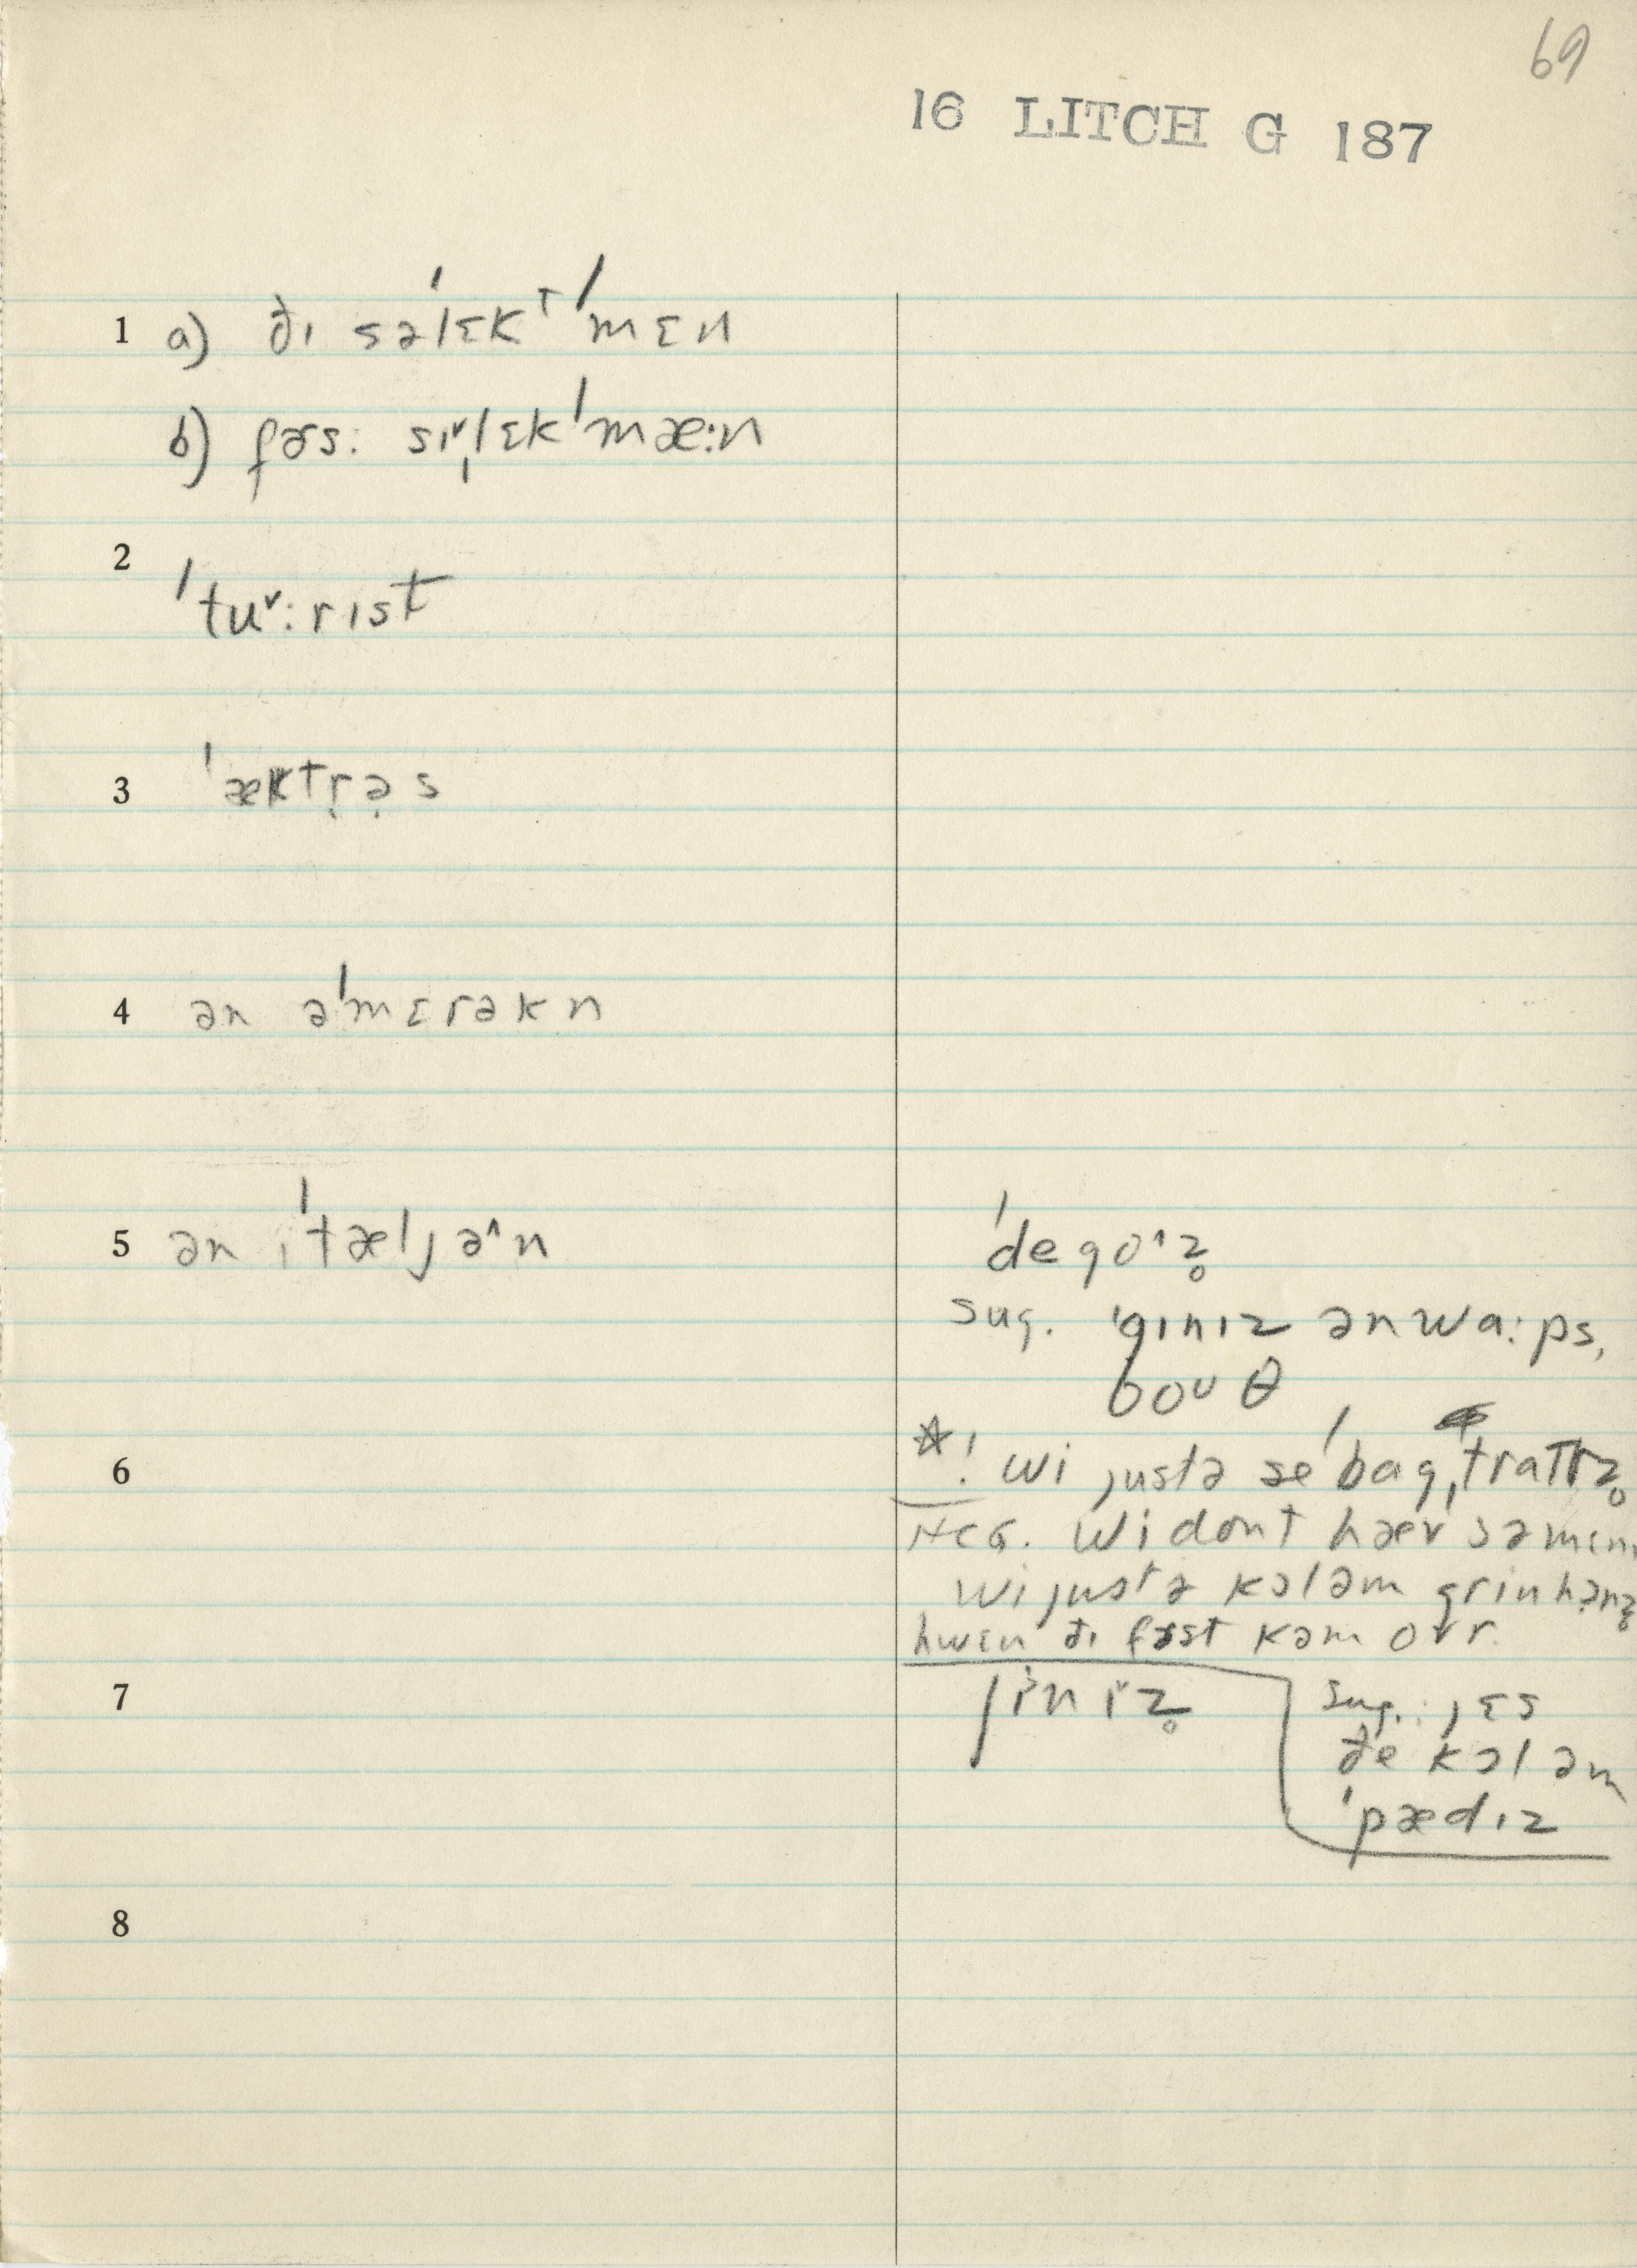 69
16 LITCH G 187
1 a) ðɪ səˈlɛkᵗˈmɛn
b) fɚs: sɪ˅ˌlɛkˈmæ:n
2 ˈtu˅:rɪst
3 ˈæktr̩ə̣s
4 ən əˈmɛrəkn
5 ən ɪˈtæljə^n
ˈdego^z̥
sug. ˈgɪnɪz ən wɑ:ps,
boᴜθ
6 *! wi justə se ˈbagˌtratɾz̥
NCG. wi dont hæv səmɛnɪ
wi justə kɔl əm grinhɔrnz̥
hwɛn ðɪ fɚst kəm ovr.
7 ʃi˅nɪ˅z̥
sug.: jɛs
ðe kɔl əm
ˈpædɪz
8